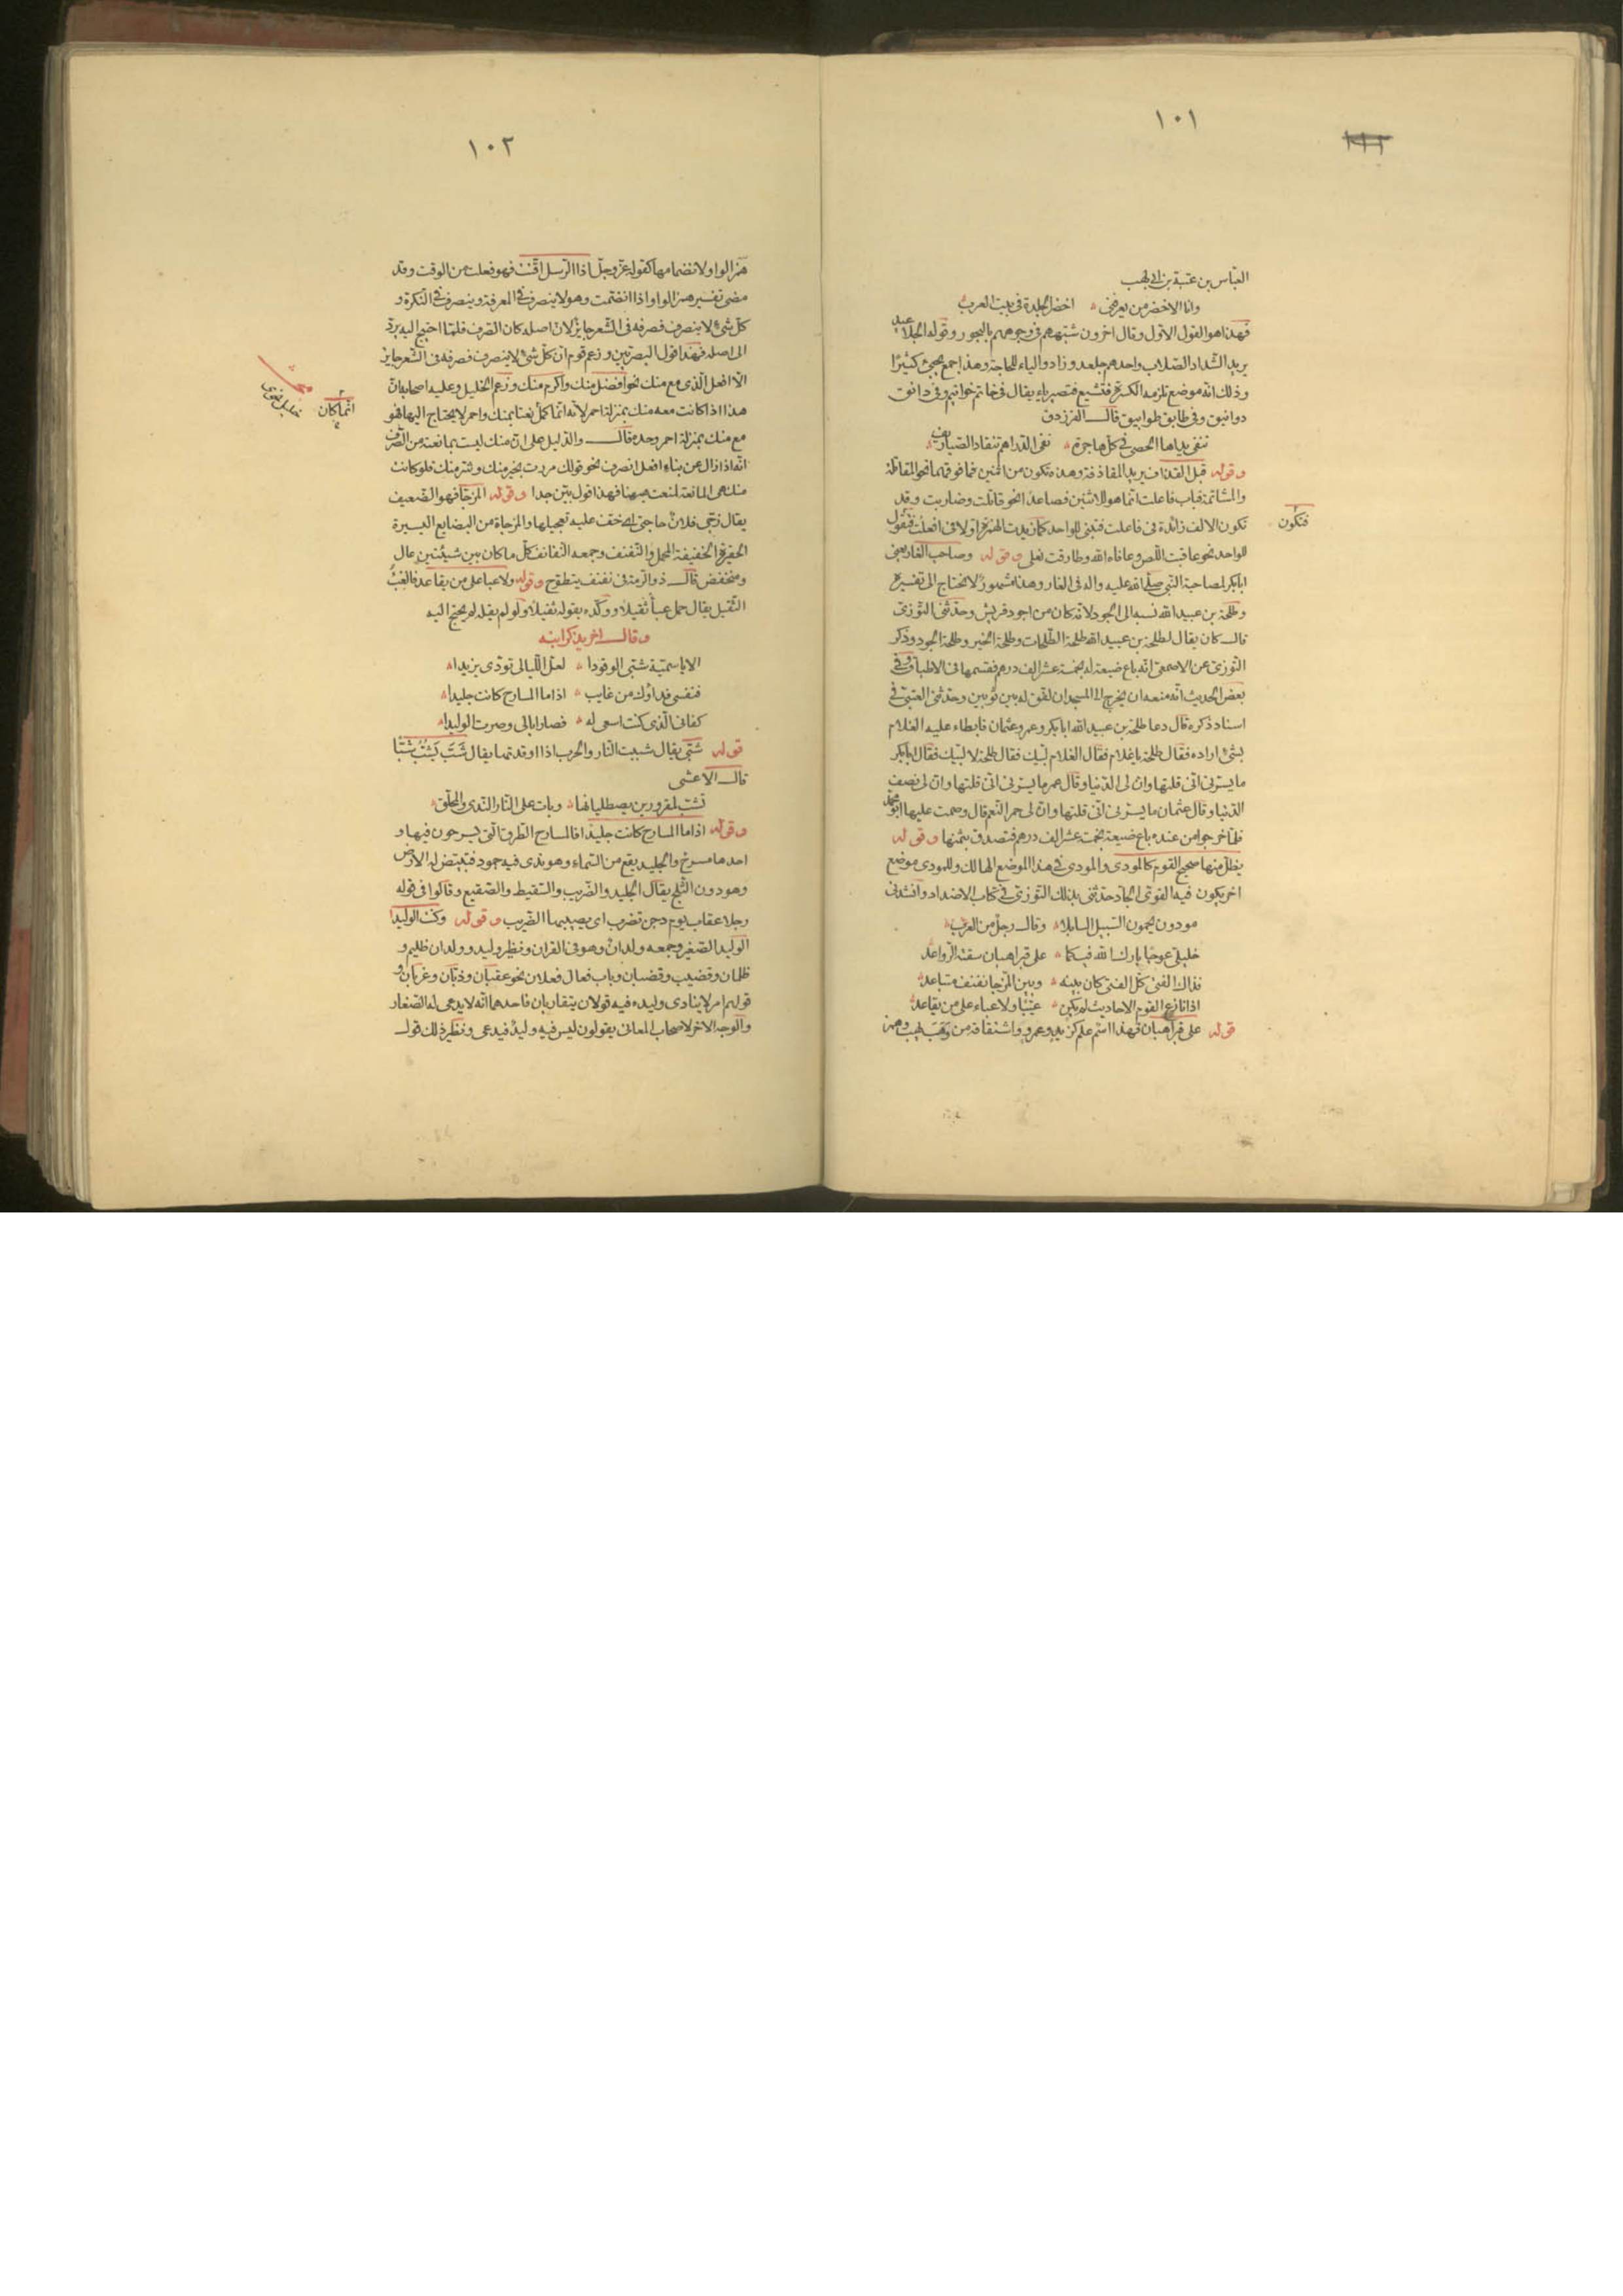 ١٠١
العبّاس بن عتبة بن ابى لهب
وانا الاخضر من يعرفنى اخضر الجلدة فى بيت العرب
فهذا هو القول الاول وقال اخرون شبههم فى وجوههم بالبحور وقوله الجلاعيد
يريد الشداد الصلاب واحدهم جلعد وزاد الياء للحاجة وهذا جمع يجىء كثيرًا
وذلك انه موضع تلزمه الكسرة فتشبع فتصير ياء يقال فى خاتم خواتيم وفى دانق
دوانيق وفى طابق طوابيق قال الفرزدق
تنفى يداها الحصى فى كل هاجرة نفى الدراهم تنقاد الصياريف
وقوله قبل القذاف يريد المقاذفة وهذه تكون من اثنين فما فوقهما نحو المقاتلة
والمشاتمة فباب فاعلت انما هو للاثنين فصاعدا نحو قاتلت وضاربت وقد
تكون الالف زائدة فى فاعلت فتبنى للواحد كما زيدت الهمزة اولا فى افعلت فتقول
فتكون
للواحد نحو عاقبت اللص وعافاه الله وطارقت نعلى وقوله وصاحب الغار يعنى
ابا بكر لمصاحبة النبى صلى الله عليه واله فى الغار وهذا مشهور لا يحتاج الى تفسيره
وطلحة بن عبيد الله نسبه الى الجود لانه كان من اجود قريش وحدثنى التوزى
قال كان يقال لطلحة بن عبيد الله طلحة الطلحات وطلحة الخير وطلحة الجود وذكر
التوزى عن الاصمعى انه باع ضيعة له بخمسة عشر الف درهم فقسمها فى الاطباق وفى
بعض الحديث انه منعه ان يخرج الى المسجد ان لفق له بين ثوبين وحدثنى العتبى فى
اسناد ذكره قال دعا طلحة بن عبيد الله ابا بكر وعمر وعثمان فابطاء عليه الغلام
بشىء اراده فقال طلحة يا غلام فقال الغلام لبيك فقال طلحة لا لبيك فقال ابا بكر
ما يسرنى انى قلتها وان لى الدنيا وقال عمر ما يسرنى انى قلتها وان لى نصف
الدنيا وقال عثمان ما يسرنى انى قلتها وان لى حمر النعم قال وصمت عليها ابو محمد
فلما خرجوا من عنده باع ضيعة بخمسة عشر الف درهم فتصدق بثمنها وقوله
يظل منها صحيح القوم كالمودى والمودى فى هذا الموضع الهالك وللمودى موضع
اخر يكون فيه القوى الجاد حدثنى بذلك التوزى فى كتاب الاضداد وانشدنى
مودون يحمون السبيل السابلا وقال رجل من العرب
خليلى عوجا بارك الله فيكما على قبر اهبان سقته الرواعد
فذاك الفتى كل الفتى كان بينه وبين المزجا نفنف متباعد
اذا نازع القوم الاحاديث لم يكن عييا ولا عباء على من يقاعد
قوله على قبر اهبان فهذا اسم علم كزيد وعمرو واشتقاقه من وهب يهب وهمز
١٠٢
همز الواو لانضمامها كقوله عز وجل اذا الرسل اقتت فهو فعلت من الوقت وقد
مضى تفسير همز الواو اذا انضمت وهو لا ينصرف فى المعرفة وينصرف فى النكرة و
كل شىء لا ينصرف فصرفه فى الشعر جايز لان اصله كان الصرف فلما احتيج اليه برد
الى اصله فهذا قول البصريين وزعم قوم ان كل شىء لا ينصرف فصرفه فى الشعر جايز
الا افعل الذى مع منك نحو افضل منك واكرم منك وزعم الخليل وعليه اصحابه ان
هذا اذا كانت معه منك بمنزلة احمر لانه انما كمل نعتا بمنك واحمر لا يحتاج اليها فهو
انما كان
مع منك بمنزلة احمر وحده قال والدليل على ان منك ليست بمانعته من الصرف
انه اذا زال عن بناء افعل انصرف نحو قولك مررت بخير منك وشر منك فلو كانت
منك هى المانعة لمنعت هيهنا فهذا قول بين جدا وقوله المزجا فهو الضعيف
يقال زجى فلان حاجتى اى خف عليه تعجيلها والمزجاة من البضايع اليسيرة
الحقيرة الخفيفة المحمل والنفنف وجمعه النفانف كل ما كان بين شيئين عال
ومنخفض قال ذو الرمة فى نفنف يتطوح وقوله ولا عبا على من يقاعد فالعبء
الثقيل يقال حمل عبأ ثقيلا ووكده بقوله ثقيلا ولو لم يقله لم يحتج اليه
وقال اخر يذكر ابنه
الا يا سمية شبى الوقودا لعل الليالى تودى يزيدا
فنفسى فداؤك من غايب اذا ما المسارح كانت جليدا
كفانى الذى كنت اسعى له فصار ابا لى وصرت الوليدا
قوله شبى يقال شببت النار والحرب اذا اوقدتهما يقال شب يشب شبا
قال الاعشى
تشب لمقرورين يصطليانها وبات على النار الندى والمحلق
وقوله اذا ما المسارح كانت جليدا فالمسارح الطرق التى يسرحون فيها و
احدها مسرح والجليد يقع من السماء وهو ندى فيه جمود فتبيض له الارض
وهو دون الثلج يقال الجليد والضريب والسقيط والصقيع وقالوا فى قوله
رجلا عقاب يوم دجن تضرب اى يصيبهما الضريب وقوله وكنت الوليدا
الوليد الصغير وجمعه ولدان وهو فى القران ونظير وليد وولدان ظليم و
ظلمان وقضيب وقضبان وباب فعال فعلان نحو عقبان وذبان وغربان و
قولهم امر لا ينادى وليده فيه قولان يتقاربان فاحدهما انه لا يدعى له الصغار
والوجه الاخر لاصحاب المعانى يقولون ليس فيه وليد فيدعى ونظير ذلك قول